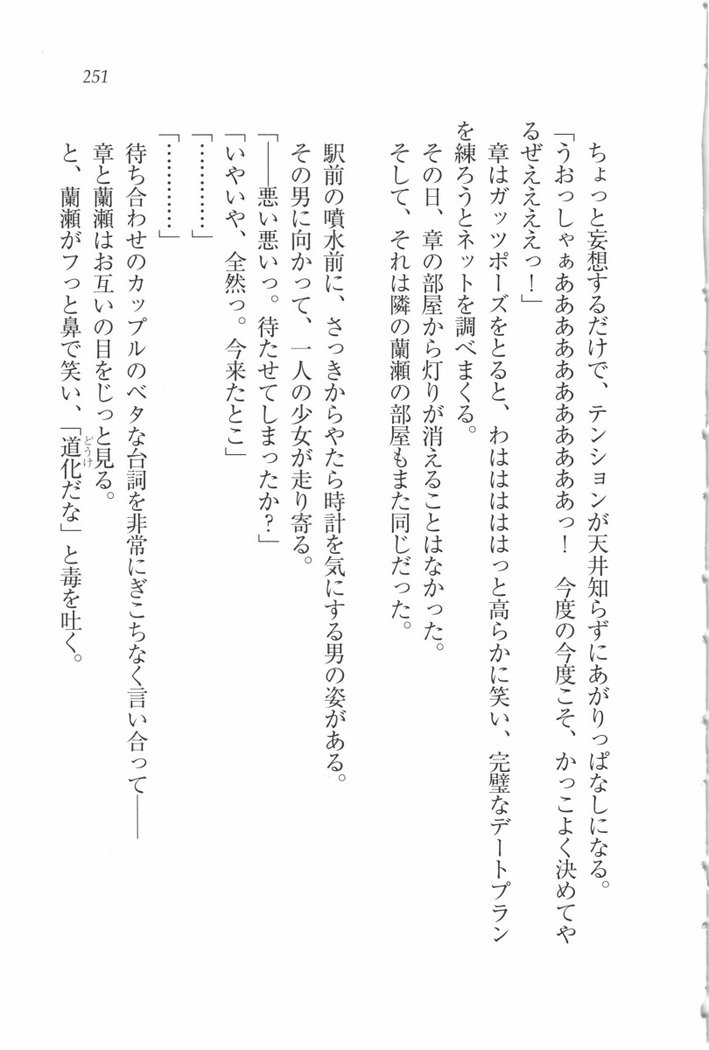 251
ちょっと妄想するだけで、テンションが天井知らずにあがりっぱなしになる。
「うおっしゃぁああああああああああっ！　今度の今度こそ、かっこよく決めてや
るぜええええっ！」
章はガッツポーズをとると、わはははははっと高らかに笑い、完璧なデートプラン
を練ろうとネットを調べまくる。
その日、章の部屋から灯りが消えることはなかった。
そして、それは隣の蘭瀬の部屋もまた同じだった。
駅前の噴水前に、さっきからやたら時計を気にする男の姿がある。
その男に向かって、一人の少女が走り寄る。
「――悪い悪いっ。待たせてしまったか？」
「いやいや、全然っ。今来たとこ」
「…………」
「…………」
待ち合わせのカップルのベタな台詞を非常にぎこちなく言い合って――
章と蘭瀬はお互いの目をじっと見る。
と、蘭瀬がフっと鼻で笑い、「道化だな」と毒を吐く。
どうけ